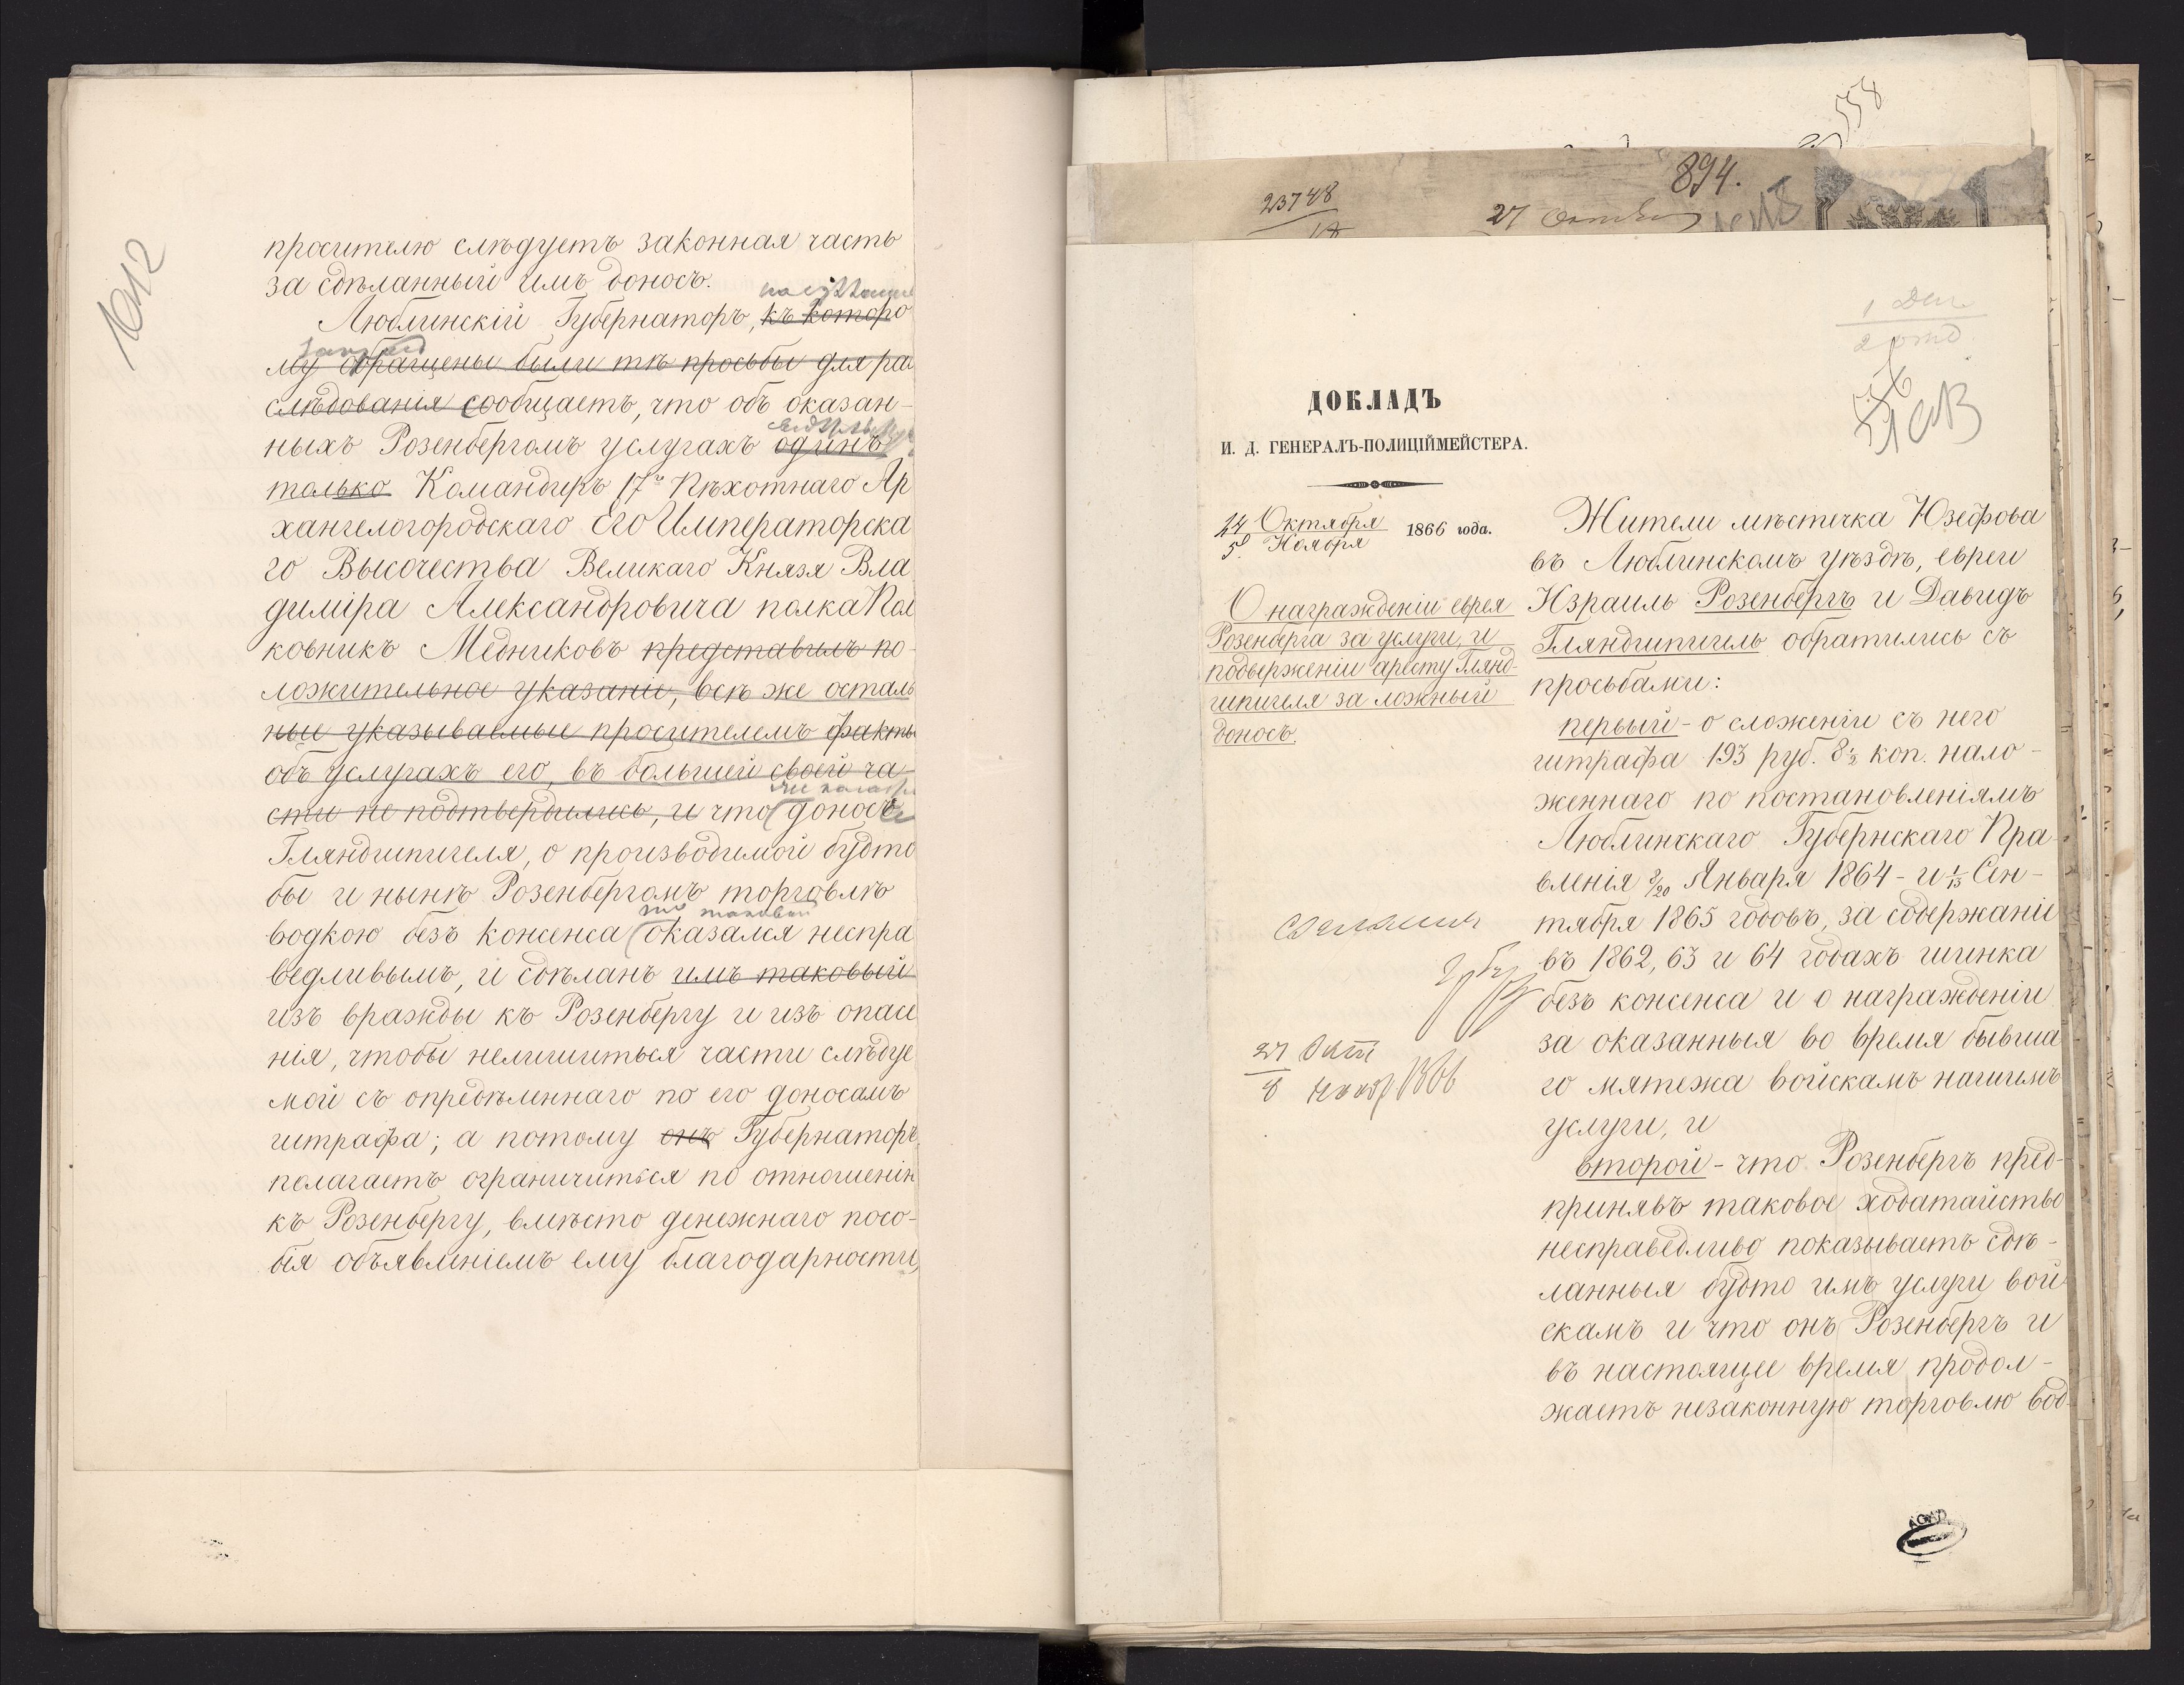 1012
просителю слѣдуетъ законная часть
за сдѣланный имъ доносъ.
Люблинскій Губернаторъ, къ которо
му обращены были тѣ просьбы для раз
слѣдованія сообщаетъ, что объ оказан-
ныхъ Розенбергомъ услугахъ одинъ
только Командиръ 17го Пѣхотнаго Ар
хангелогородскаго Его Императорска
го Высочества Великаго Князя Вла
диміра Александровича полка Пол
ковникъ Медниковъ представилъ по-
ложительное указаніе, всѣ же осталь
ные указываемые просителемъ факты
объ услугахъ его, въ большей своей ча-
сти не подтвердились, и что доносъ
Гляндшпигеля, о производимой будто
бы и нынѣ Розенбергомъ торговлѣ
что таковый
водкою безъ консенса оказался неспра
ведливымъ, и сдѣланъ имъ таковый
изъ вражды къ Розенбергу и изъ опасе
нія, чтобы нелишиться части слѣдуе
мой съ опредѣленнаго по его доносамъ
штрафа; а потому онъ Губернаторъ
полагаетъ ограничиться по отношенію
къ Розенбергу, вмѣсто денежнаго посо-
бія объявленіемъ ему благодарности,
558
894.
23748
27
1
2 отд.
556
ДОКЛАДЪ
И. Д. ГЕНЕРАЛЪ-ПОЛИЦІЙМЕЙСТЕРА.
24 Октября
5 Ноября 1866 года.
О награжденіи еврея
Розенберга за услуги, и
подверженіи аресту Глянд-
шпигеля за ложный
доносъ.
27 Окт
8 Нояб 1866
Жители мѣстечка Юзефова
въ Люблинскомъ уѣздѣ, евреи
Израиль Розенбергъ и Давидъ
Гляндшпигель обратились съ
просьбами:
первый - о сложеніи съ него
штрафа 193 руб. 8½ коп. нало-
женнаго по постановленіямъ
Люблинскаго Губернскаго Пра-
вленія 8/20 Января 1864 - и 1/13 Сен-
тября 1865 годовъ, за содержаніе
въ 1862, 63 и 64 годахъ шинка
безъ консенса и о награжденіи
за оказанныя во время бывша
го мятежа войскамъ нашимъ
услуги, и
второй - что Розенбергъ пред-
принявъ таковое ходатайство
несправедливо показываетъ сдѣ-
ланныя будто имъ услуги вой
скамъ и что онъ Розенбергъ и
въ настоящее время продол-
жаетъ незаконную торговлю вод-
AGAD